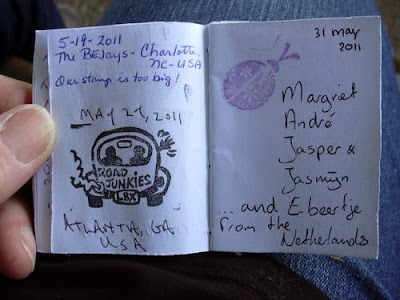 5-19-2011
The BEJays - Charlotte,
NC - USA
Our stamp is too big!
MAY 21, 2011
ROAD
JUNKIES
LBX
ATLANTA, GA
USA
31 May
2011
Margriet
André
Jasper &
Jasmijn
... and E-beertje
from the
Netherlands